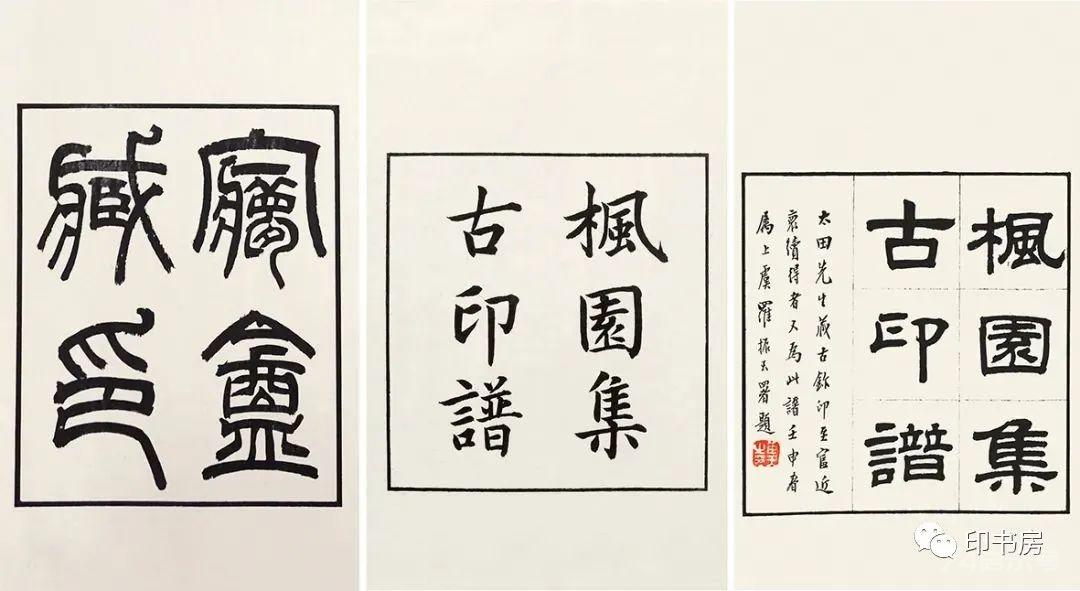 㝱盦
臧印
楓園集
古印譜
楓園集
古印譜
太田先生藏古鉩印至富近
裒續得者又爲此譜壬申春
上虞羅振玉署題
印书房